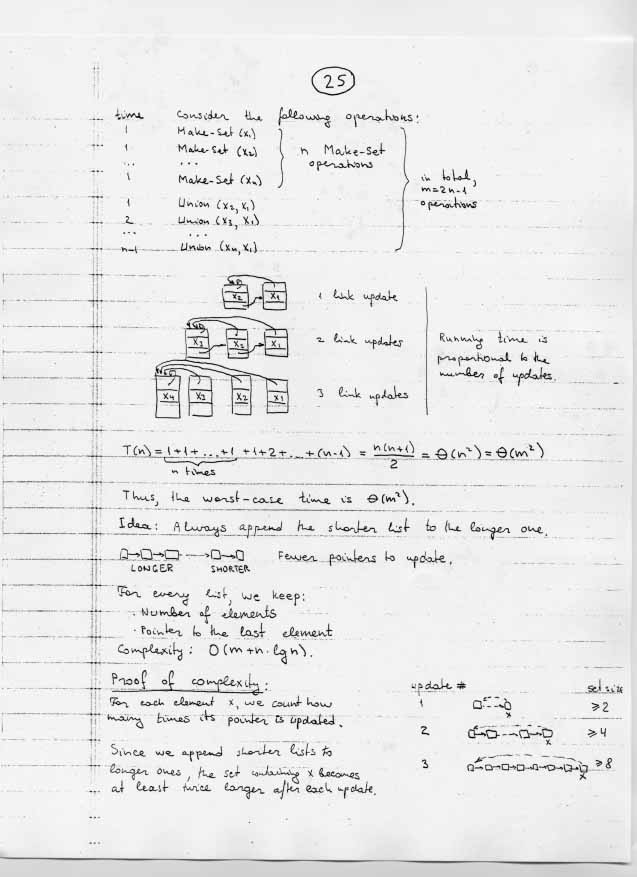 25
time Consider the following operations:
1 Make-Set (x1)
1 Make-Set (x2)
... ...
1 Make-Set (xn)
n Make-Set
operations
1 Union (x2, x1)
2 Union (x3, x1)
... ...
n-1 Union (xn, x1)
in total,
m=2n-1
operations
x2 x1 1 link update
x3 x2 x1 2 link updates
x4 x3 x2 x1 3 link updates
Running time is
proportional to the
number of updates.
T(n) = 1+1+...+1 +1+2+...+(n-1) = n(n+1)/2 = Θ(n²) = Θ(m²)
n times
Thus, the worst-case time is Θ(m²).
Idea: Always append the shorter list to the longer one.
LONGER SHORTER Fewer pointers to update.
For every list, we keep:
· Number of elements
· Pointer to the last element
Complexity: O(m+n·lgn).
Proof of complexity:
For each element x, we count how
many times its pointer is updated.
Since we append shorter lists to
longer ones, the set containing x becomes
at least twice larger after each update.
update # set size
1 x ≥2
2 x ≥4
3 x ≥8